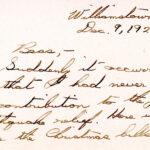 Williamstown
Dec. 9, 192
Boas,-
Suddenly it occurre
that I had never
contribution to the
quake relief. Here i
the Christmas bells